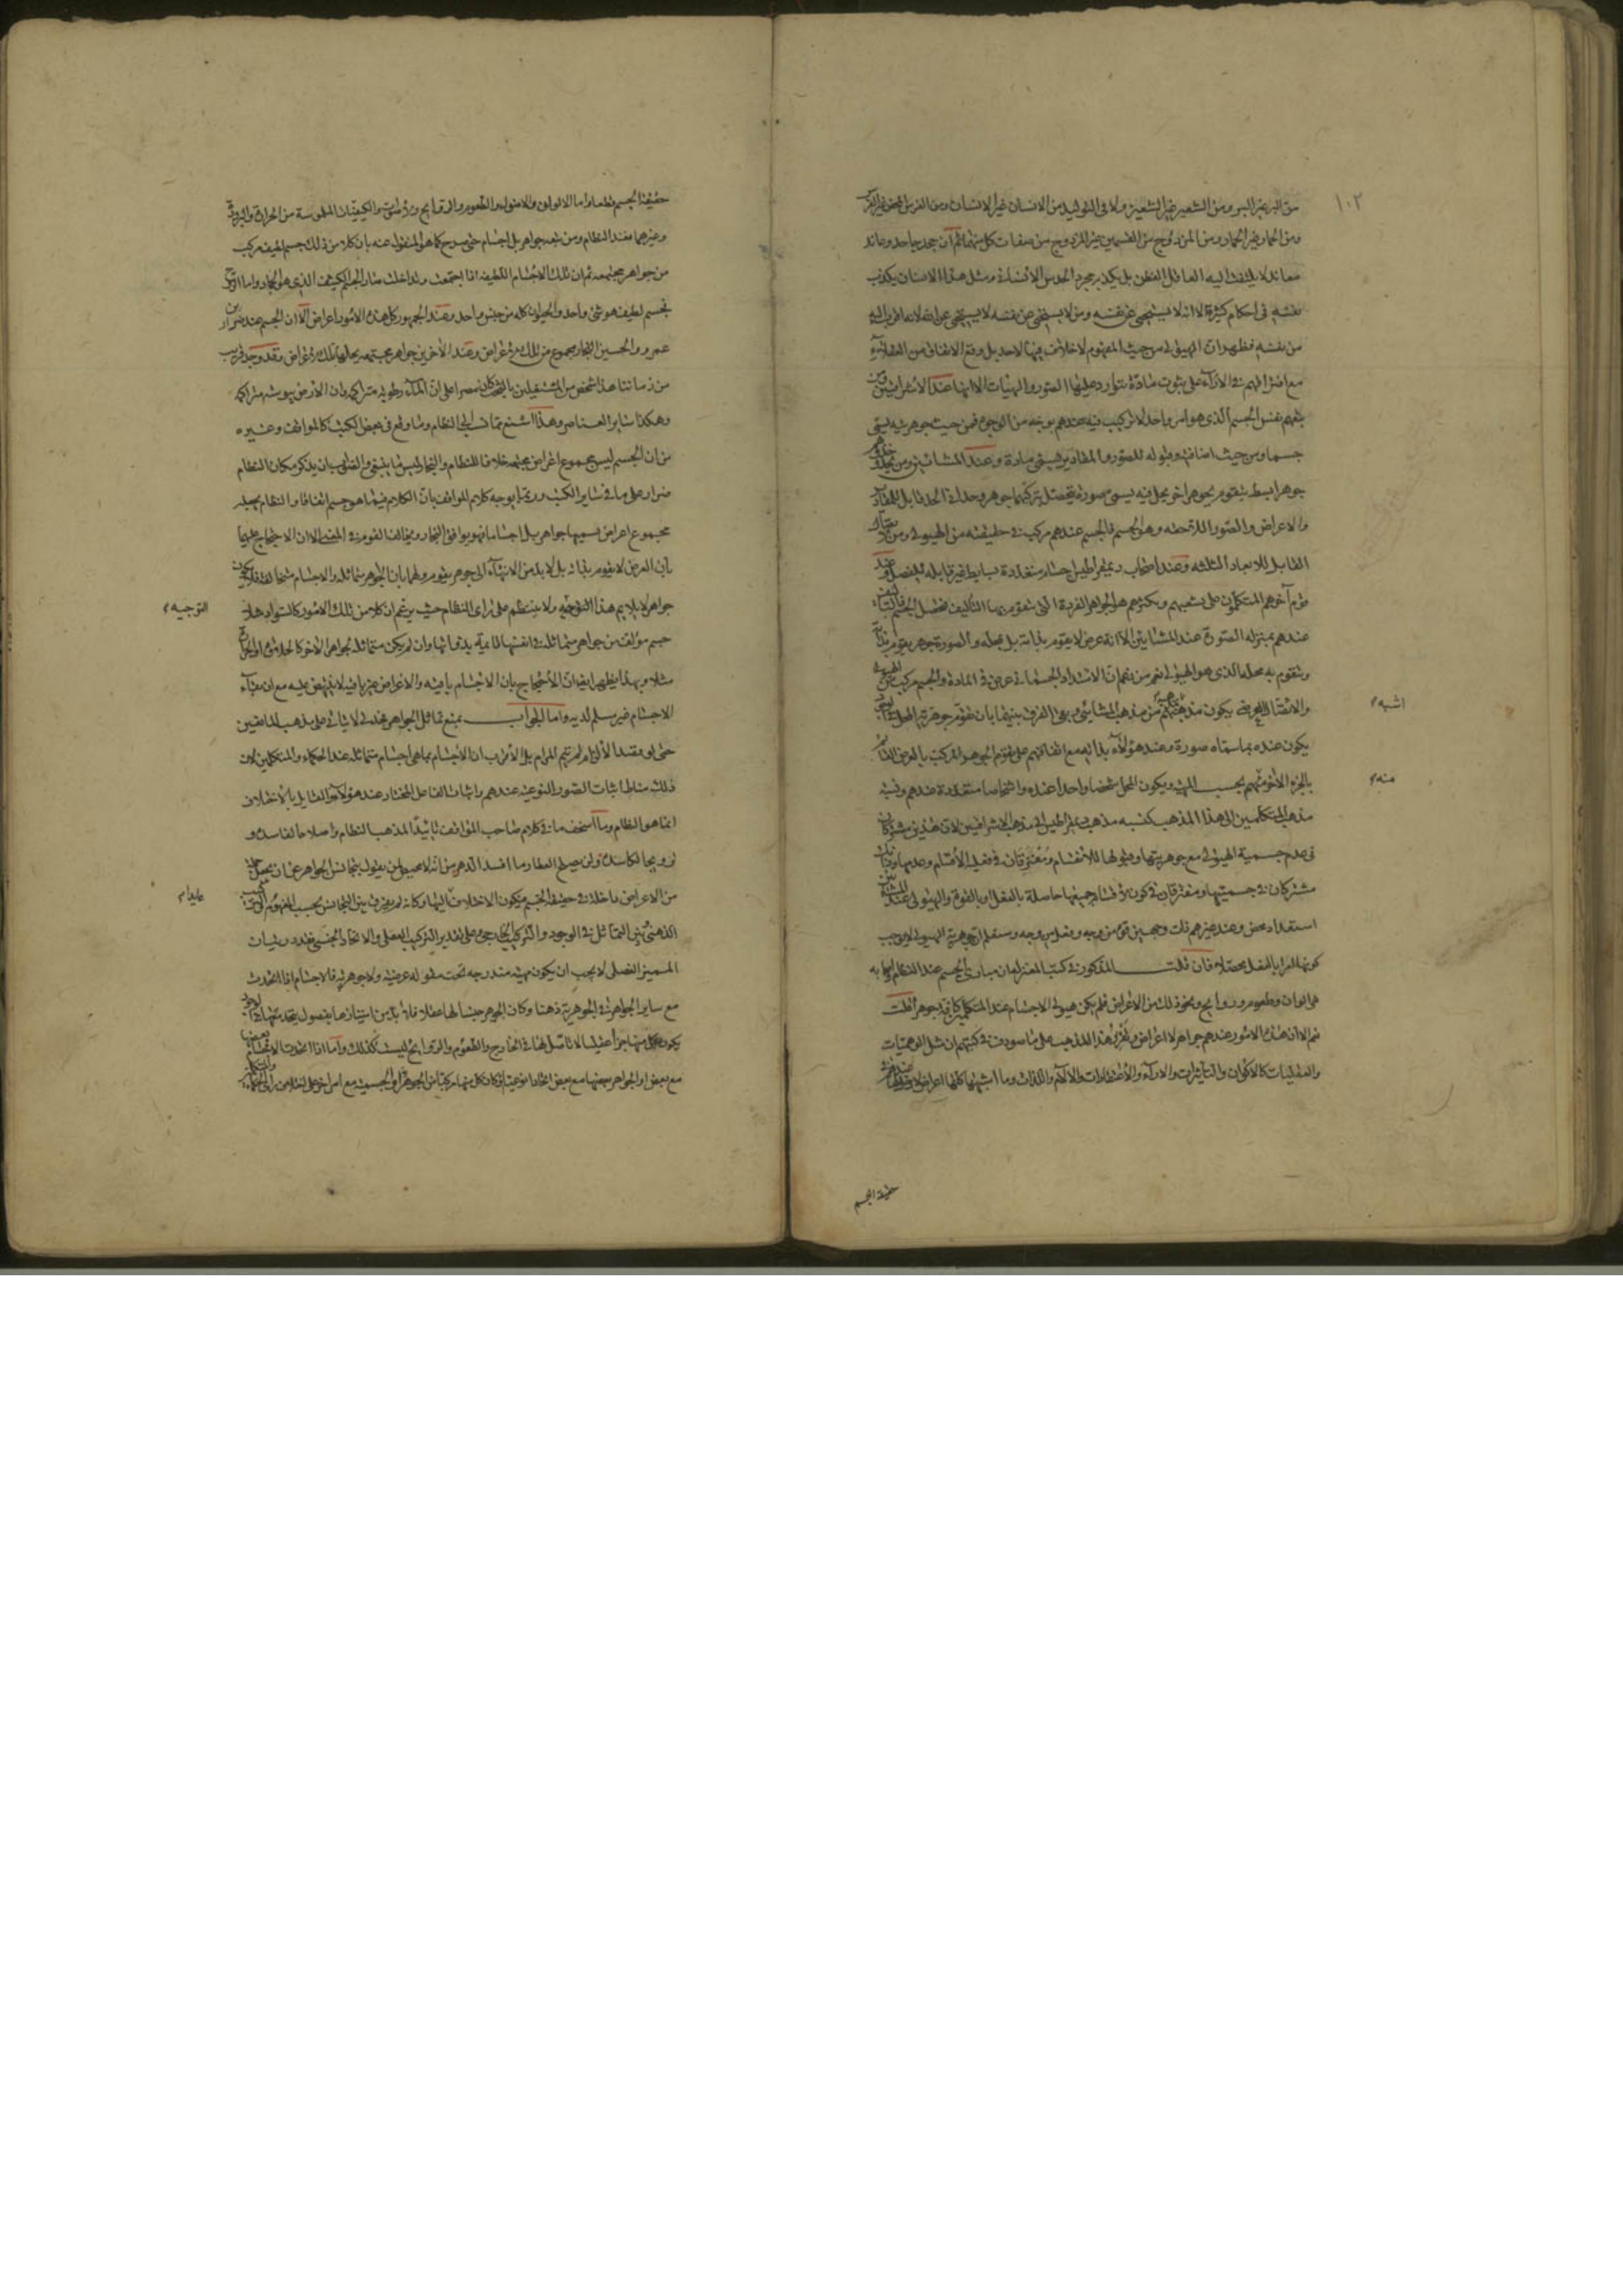 ١٠٢
من البر غير البر ومن الشعير غير الشعير ولا في التوليد من الانسان غير الانسان ومن الفرس غير الفرس
ومن الحمار غير الحمار ومن المزدوج من القسمين غير المزدوج من صفات كل منهما ثم ان جحد جاحد وعاند
معاند لا يلتفت اليه العاقل الفطن بل يكذبه بمجرد الحدس ومثل هذا الانسان يكذب
نفسه في احكام كثيرة الا انه لا يستحيي عن نفسه ومن لا يستحيي من نفسه لا يستحيي عن
من نفسه فظهر ان الهيولى من حيث المفهوم لا خلاف فيها لاحد بل وقع الاتفاق من العقلاء
مع افتراقهم في الآراء على ثبوت مادة تتوارد عليها الصور والهيئات الا انها عند الاشراقيين ومن
نفس الجسم الذي هو امر واحد لا تركيب فيه عندهم بوجه من الوجوه فمن حيث جوهريته يسمى
جسما ومن حيث اضافته وقبوله للصور والمقادير يسمى مادة وعند المشائين ومن يحذو حذوهم
جوهر ابسط يتقوم بجوهر اخر يحل فيه يسمى صورة يتحصل بتركبهما جوهر وحداني الحد قابل للمقادير
والاعراض والصور اللاحقة وهو الجسم فالجسم عندهم مركب في حقيقته من الهيولى ومن
القابل للابعاد الثلثة وعند اصحاب ديمقراطيس اجسام متعددة بسايط غير قابلة للفصل وعند
قوم آخر هم المتكلمون على تشعبهم وتكثرهم هو الجواهر الفردة التي تتقوم بها التأليف فتحصل الجسم
عندهم بمنزلة الصورة عند المشائين الا انه عرض لا يقوم بذاته بل بمحله والصورة جوهر يقوم بذاته
ويتقوم به محله الذي هو الهيولى نعم من زعم ان الامتداد الجسماني عرض في المادة والجسم مركب
يكون مذهبه من مذهب المشائين وبقي الفرق بينهما بان تقوم جوهرية المحل
يكون عنده بما سماه صورة وعند هؤلاء بذاته مع اتفاقهم على تقوم الجوهر المركب بالعرض القائم
بالجزء الاخر منهم بحسب المهية ويكون المحل شخصا واحدا عنده واشخاصا متعددة عندهم ونسبة
مذهب المتكلمين الى هذا المذهب كنسبة مذهب ديمقراطيس الى مذهب الاشراقيين لان هذين مشتركان
في عدم جسمية الهيولى مع جوهريتها وقبولها للانقسام ومفترقان في فعلية الاقسام وعدمها وذانك
مشتركان في جسميتها ومفترقان في كون الاقسام حاصلة بالفعل او بالقوة والهيولى عند المشائين
استعداد محض وعند غيرهم ذات وجهين قوة من وجه وفعل من وجه وستعلم ان جوهرية الهيولى لا يوجب
كونها امرا بالفعل محصلا فان قلت المذكور في كتب المعتزلة ان مبادي الجسم عند النظام واصحابه
هي الوان وطعوم وروايح ونحو ذلك من الاعراض فلم يكن هيولى الاجسام عند المتكلمين كافة جوهرا قلت
نعم الا ان هذه الامور عندهم جواهر لا اعراض وتقرير هذا المذهب على ما صودف في كتبهم ان مثل
والعقليات كالاكوان والتأثيرات والآراء والاعتقادات والآلام واللذات وما اشبهها كلها اعراض لا دخل لها في
اشبه
منه
حقيقة الجسم
حقيقة الجسم قطعا واما الالوان والاضواء والطعوم والروايح والاصوات والكيفيات الملموسة من الحرارة والبرودة
وغيرهما فعند النظام ومن تبعه جواهر بل اجسام حتى صرح كما هو المنقول عنه بان كلا من ذلك جسم لطيف مركب
من جواهر مجتمعة ثم ان تلك الاجسام اللطيفة اذا اجتمعت وتداخلت صار الجسم الكثيف الذي هو الجماد واما الروح
فجسم لطيف هو شيء واحد والحيوان كله من جنس واحد وعند الجمهور كل هذه الامور اعراض الا ان الجسم عند ضرار بن
عمرو والحسين النجار مجموع من تلك الاعراض وعند الآخرين جواهر مجتمعة يحلها تلك الاعراض وقد وجد قريب
من زماننا هذا شخص من المشتغلين بالبحث كان مصرا على ان الماء رطوبة متراكمة وان الارض يبوسة متراكمة
وهكذا ساير العناصر وهذا اشنع مما نسب الى النظام وما وقع في بعض الكتب كالمواقف وغيره
من ان الجسم ليس مجموع اعراض مجتمعة خلافا للنظام والنجار ليس ما ينبغي والصواب ان يذكر مكان النظام
ضرار على ما في ساير الكتب وربما يوجه كلام المواقف بان الكلام فيما هو جسم اتفاقا والنظام يجعله
مجموع اعراض يسميها جواهر بل اجساما فهو يوافق النجار ويخالف القوم في المعنى الا ان الاحتجاج عليهما
بان العرض لا يقوم بذاته بل لا بد من الانتهاء الى جوهر يقوم وبان الجواهر متماثلة والاجسام متخالفة فلا يكون
جواهر لا يلايم هذا التوجيه ولا ينتظم على راي النظام حيث يزعم ان كلا من تلك الامور كالسواد مثلا
جسم مؤلف من جواهر متماثلة في انفسها قائمة بذواتها وان لم يكن متماثلة لجواهر الاخر كالحلاوة او الحرارة
مثلا وبهذا يظهر ايضا ان الاحتجاج بان الاجسام باقية والاعراض غير باقية لا ينتهض عليه مع ان بقاء
الاجسام غير مسلم لديه واما الجواب بمنع تماثل الجواهر على مذهب المانعين
حتى لو قصد الالزام لم يتم المرام بل الاقرب ان الاجسام بما هي اجسام متماثلة عند الحكماء والمتكلمين لان
ذلك مناط اثبات الصور النوعية عندهم واثبات الفاعل المختار عند هؤلاء والقايل بالاختلاف
انما هو النظام وما اسخف ما في كلام صاحب المواقف تأييدا لمذهب النظام واصلاحا لفاسده و
ترويجا لكاسده ولن يصلح العطار ما افسد الدهر من انه لا محيص لمن يقول بتجانس الجواهر عن ان يجعل جملة
من الاعراض داخلة في حقيقة الجسم فيكون الاختلاف اليها وكانه لم يفرق بين التجانس بحسب المفهوم
الذهني وبين التماثل في الوجود والتركيب الخارجي وعلى تقدير التركيب العقلي والاتحاد الجنسي فقد دريت ان
المميز الفصلي لا يجب ان يكون مهية مندرجة تحت مقولة عرضية ولا جوهرية فالاجسام اذا اتحدت
مع ساير الجواهر في الجوهرية ذهنا وكان الجوهر جنسا لها عقلا فلا بد من امتيازها بفصول
يكون كل منها جزءا عقليا لا تأصل لها في الخارج والطعوم والروايح ليست كذلك واما اذا اتحدت الاجسام بعضها
مع بعض او الجواهر بعضها مع بعض اتحادا نوعيا وكان كل منها مركبا من الجوهر او الجسمية مع امر اخر
التوجيه
عايدا